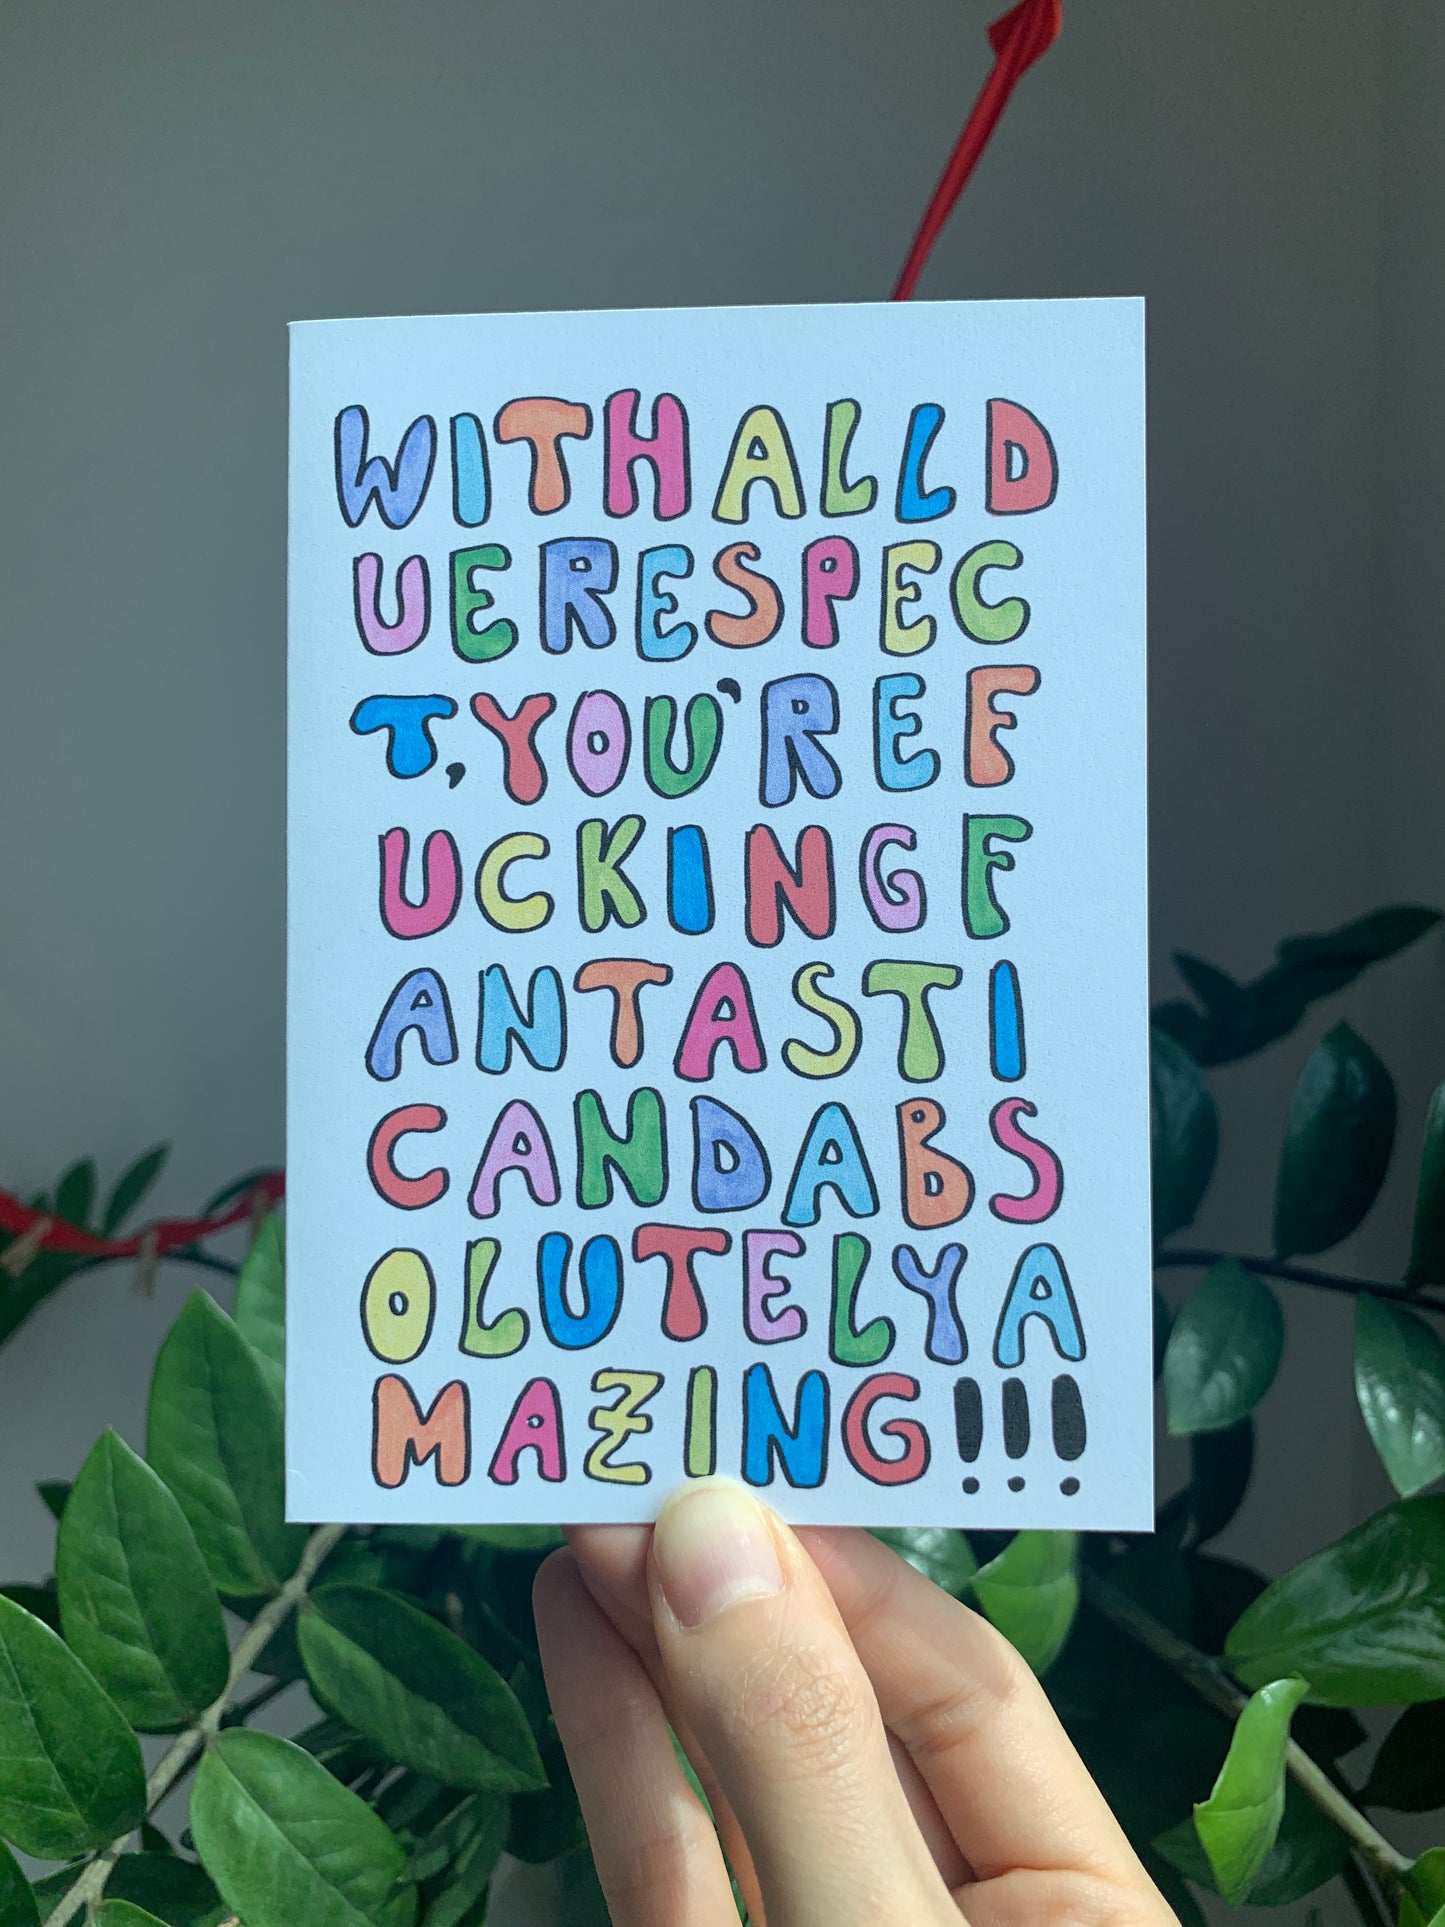 WITH ALL D
UE RESPEC
T, YOU'RE F
UCKING F
ANTASTI
C AND ABS
OLUTELY A
MAZING!!!